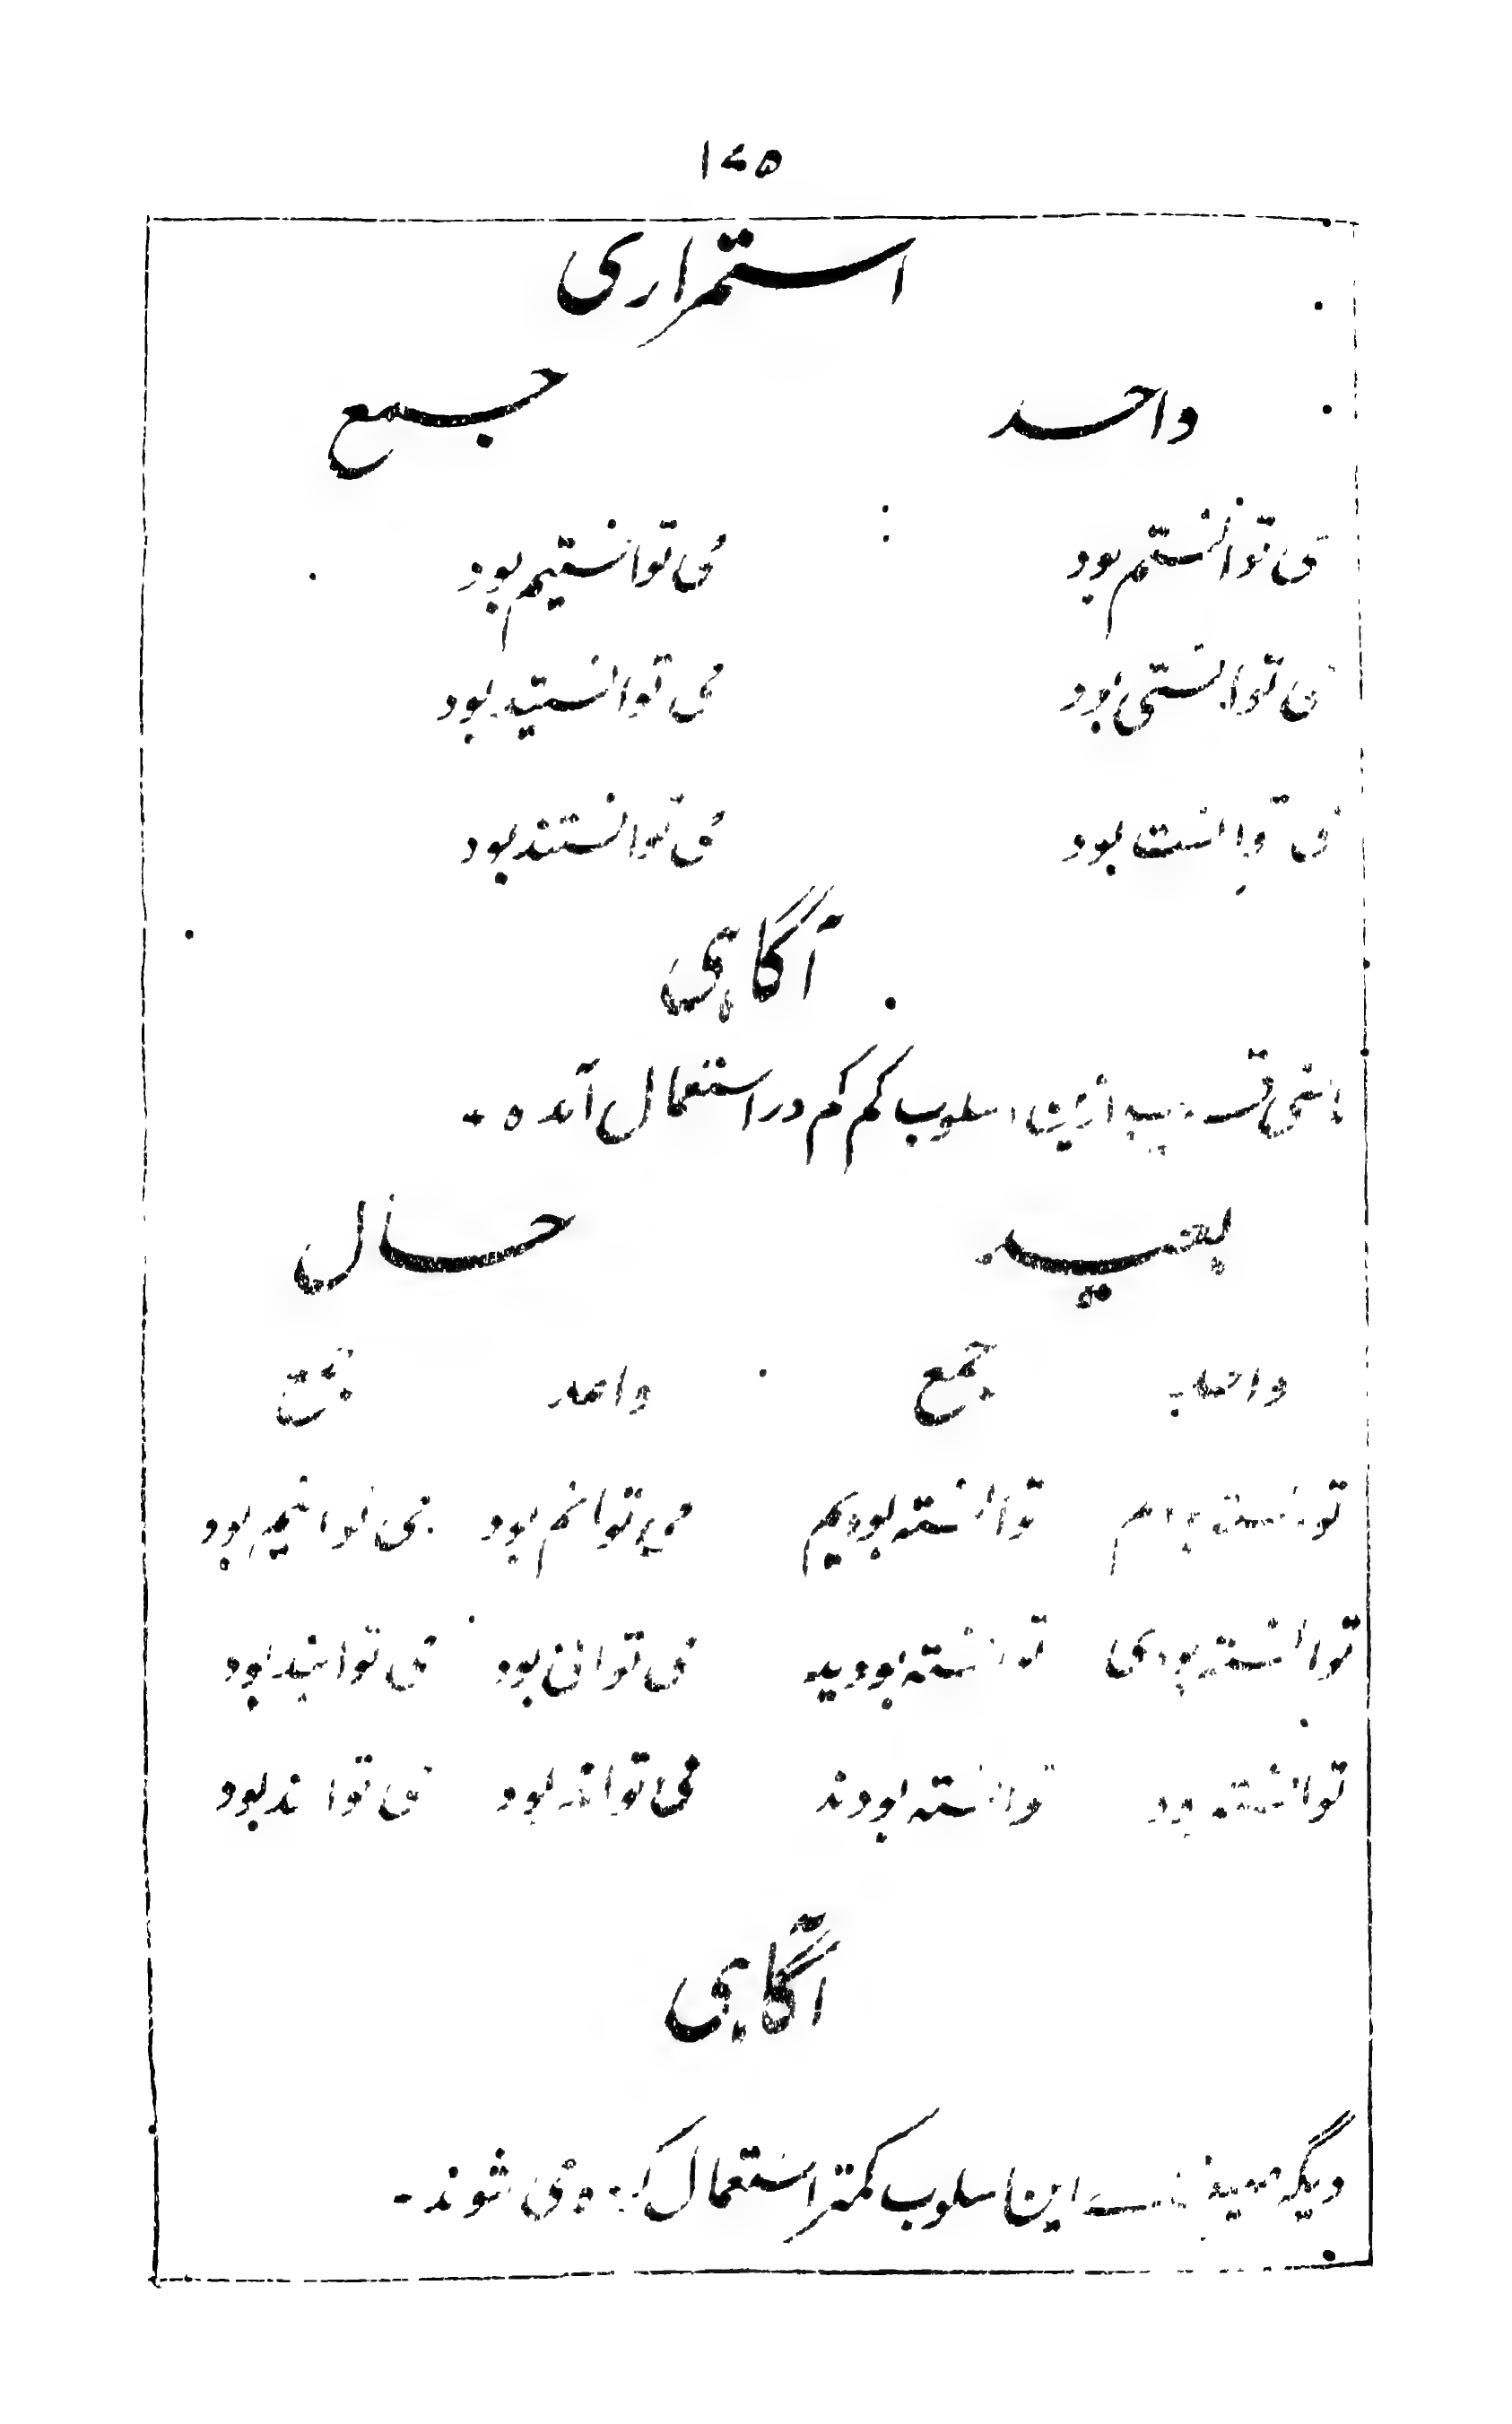 ۱۷۵
استمراری
واحد جمع
می توانستم بود می توانستیم بود
می توانستی بود می توانستید بود
می توانست بود می توانستند بود
آگاہی
ماضی قریب ازین اسلوب کم کم در استعمال آمدہ -
بعید حال
واحد جمع واحد جمع
توانستہ بودم توانستہ بودیم می توانم بود می توانیم بود
توانستہ بودی توانستہ بودید می توانی بود می توانید بود
توانستہ بود توانستہ بودند می تواند بود می توانند بود
آگاہی
دیگر این اسلوب کمتر استعمال کردہ می شوند -